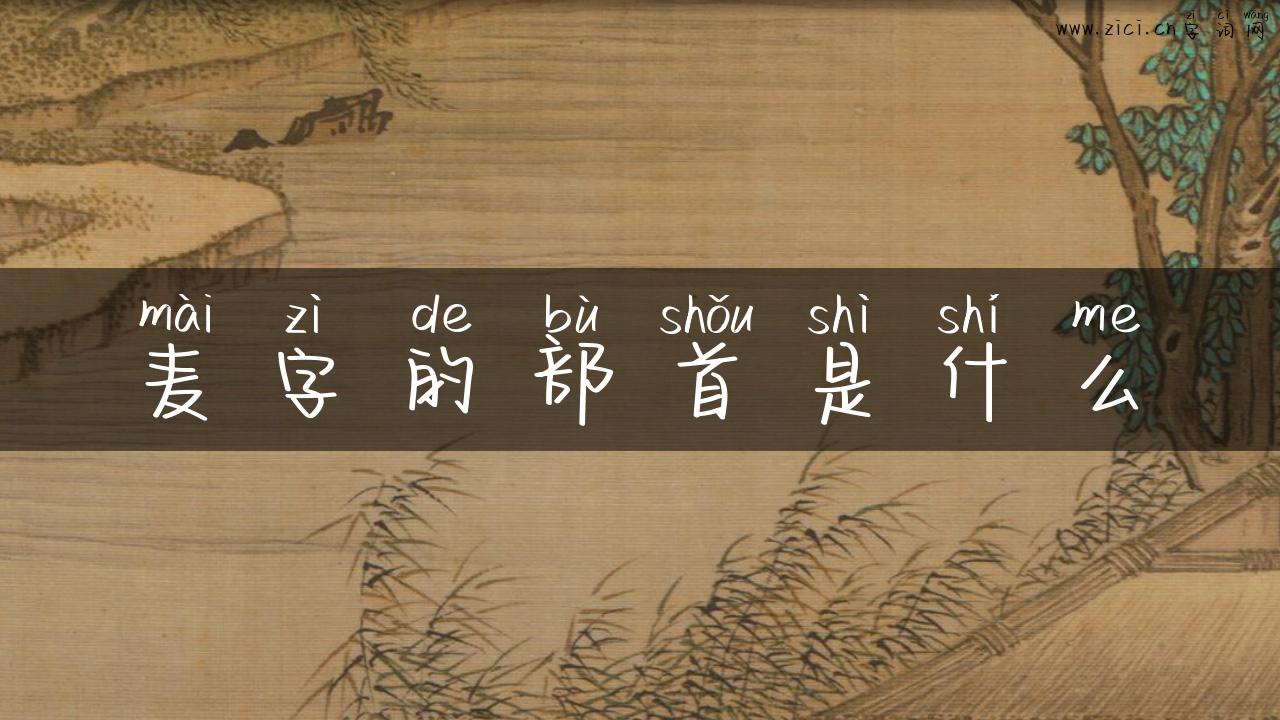 zì cí wǎng
www.zici.cn字词网
mài zì de bù shǒu shì shí me
麦字的部首是什么